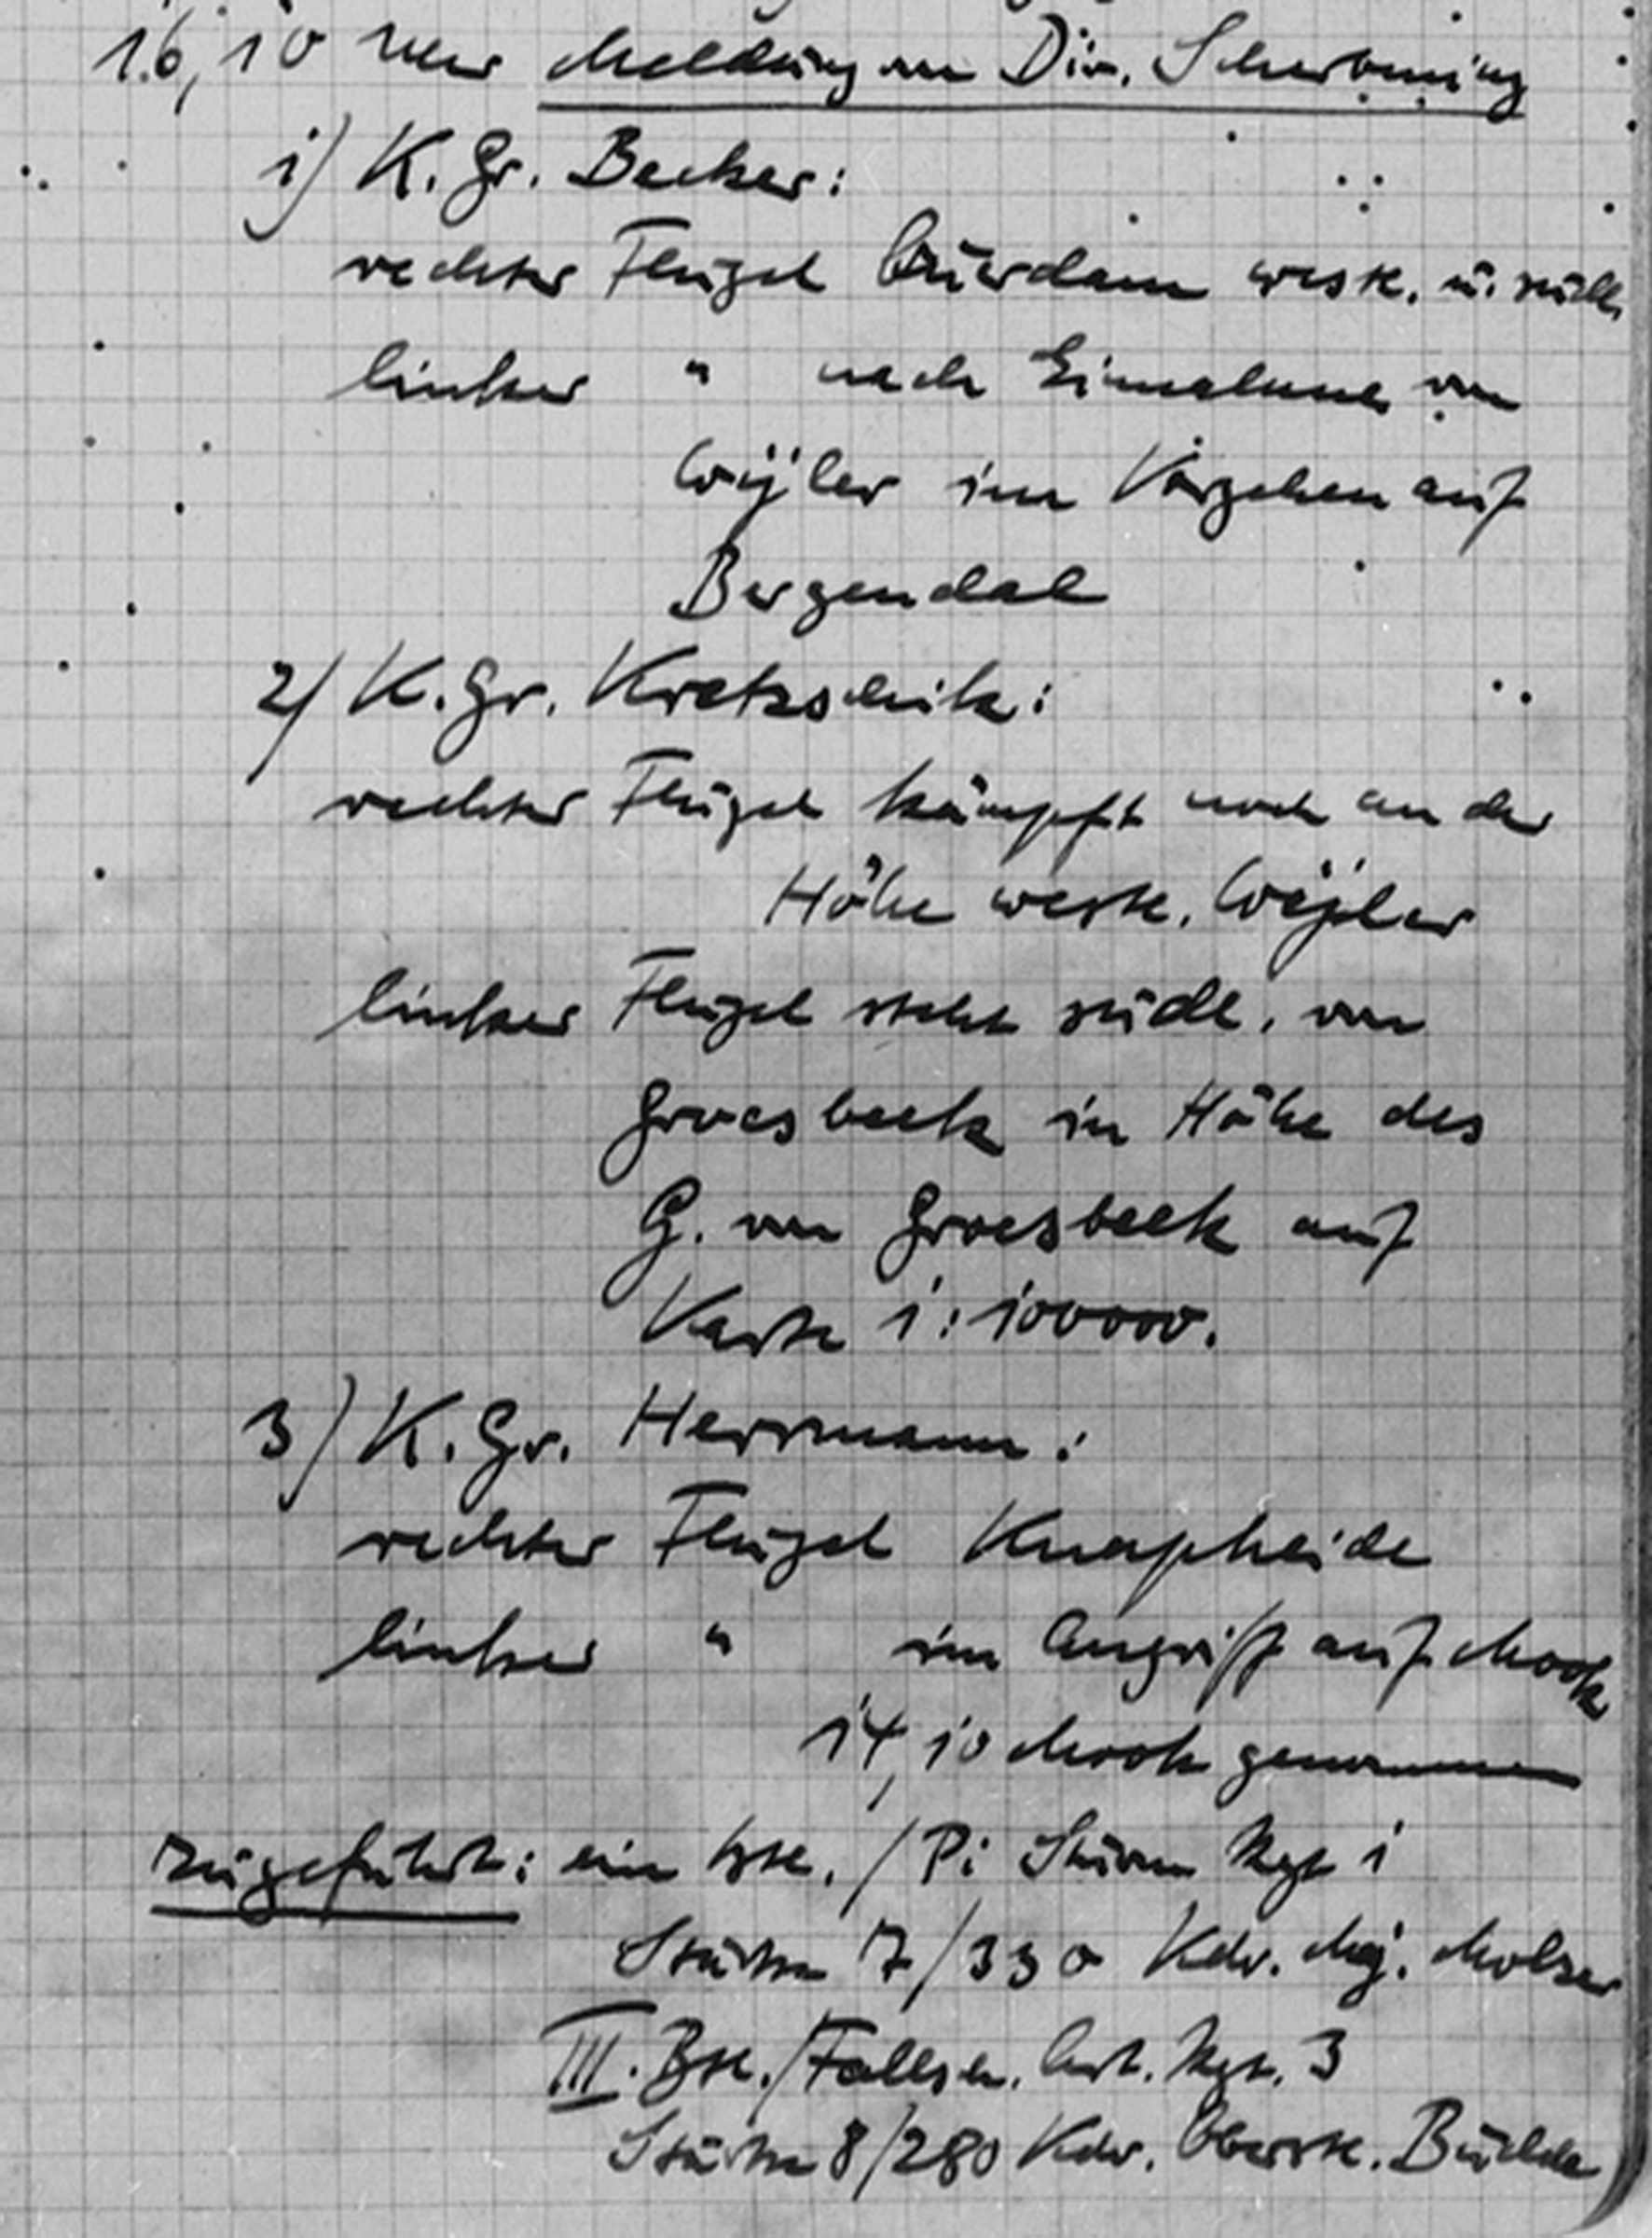 16,10 Uhr Meldung an Div. Scherbening
1) K.Gr. Becker:
rechter Flügel westl. u. südl.
linker " nach Einnahme von
Wijler im Vorgehen auf
Bergendal
2) K.Gr. Kretschik:
rechter Flügel kämpft noch an der
Höhe westl. Wijler
linker Flügel steht südl. von
Groesbeek in Höhe des
G. von Groesbeek auf
Karte 1:100000.
3) K.Gr. Herrmann:
rechter Flügel Knapheide
linker " im Angriff auf Mook
14,10 Mook genommen
Zugeführt: ein Btl. / Pi Sturm Rgt 1
Stärke 7/330 Kdr. Maj.
III. Btl./Fallsch. Art. Rgt. 3
Stärke 8/280 Kdr. Oberstl.